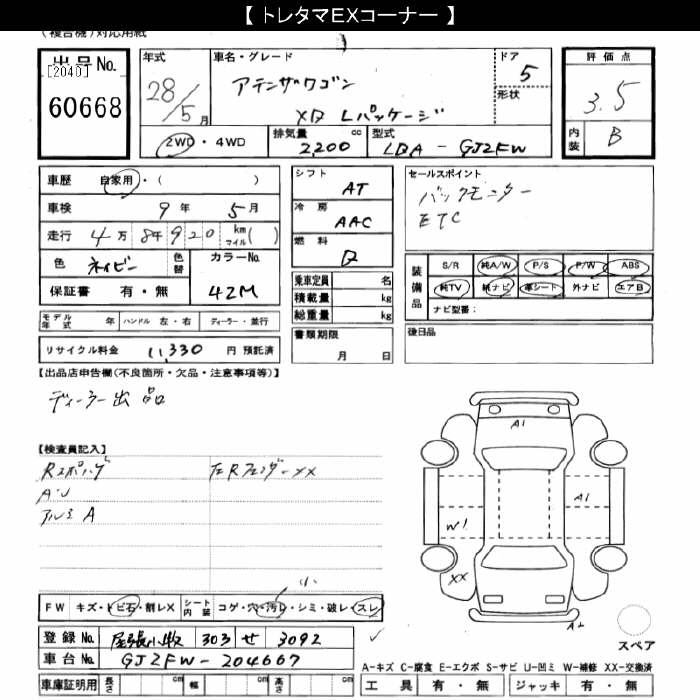 【 トレタマEXコーナー 】
(複合機)対応用紙
出品No.
[2040]
60668
年式
28/5月
車名・グレード
アテンザワゴン
XD Lパッケージ
ドア
5
形状
評価点
3.5
内装
B
2WD・4WD
排気量
2,200 cc
型式
LDA-GJ2FW
車歴 自家用・( )
車検 9年 5月
走行 4万 8千 9 2 0 km マイル( )
色 ネイビー 色替
カラーNo. 42M
保証書 有・無
モデル年式 年 ハンドル 左・右 ディーラー・並行
リサイクル料金 11,330 円 預託済
シフト
AT
冷房
AAC
燃料
D
乗車定員 名
積載量 kg
総重量 kg
書類期限
月 日
セールスポイント
バックモニター
ETC
装備品
S/R 純A/W P/S P/W ABS
純TV 純ナビ 革シート 外ナビ エアB
ナビ型番：
後日品
【出品店申告欄(不良箇所・欠品・注意事項等)】
ディーラー出品
【検査員記入】
左Rフェンダーxx
アルミA
FW キズ・トビ石・割レX シート内装 コゲ・穴・汚レ・シミ・破レ・スレ
小
登録No. 尾張小牧 303 せ 3092
車台No. GJ2FW-204667
車庫証明用 長さ cm 幅 cm 高さ cm
A1
A1
W1
XX
A2
スペア
A-キズ C-腐食 E-エクボ S-サビ U-凹ミ W-補修 XX-交換済
工具 有・無 ジャッキ 有・無